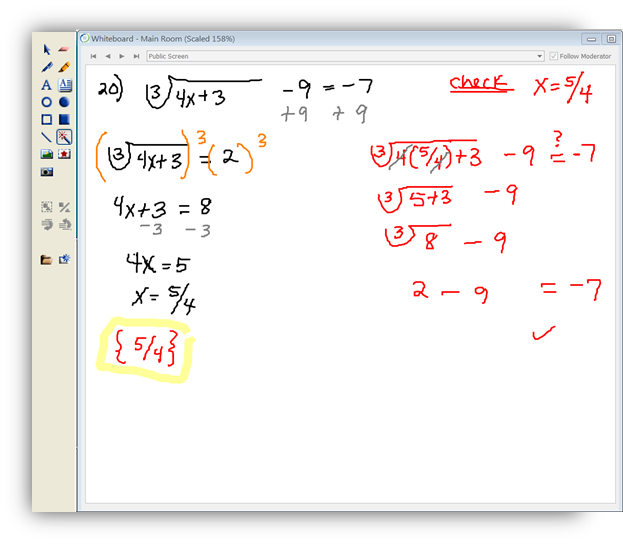 Whiteboard - Main Room (Scaled 158%)
Public Screen
Follow Moderator
20) ∛4x+3 - 9 = -7
+9 +9
(∛4x+3)³ = (2)³
4x+3 = 8
-3 -3
4x = 5
x = 5/4
{5/4}
check x = 5/4
∛4(5/4)+3 - 9 ≟ -7
∛5+3 - 9
∛8 - 9
2 - 9 = -7
✓